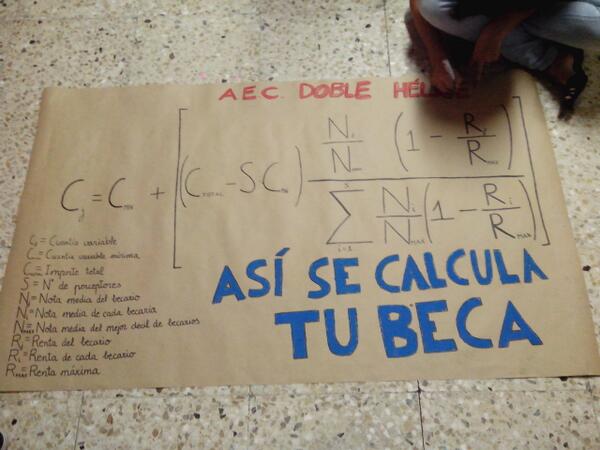 A.E.C. DOBLE HÉLICE
C_j = C_MIN + [ (C_TOTAL - S C_MIN) \frac{\frac{N_j}{N_MAX} (1 - \frac{R_j}{R_MAX})}{\sum_{i=1}^{S} \frac{N_i}{N_MAX} (1 - \frac{R_i}{R_MAX})} ]
C_j = Cuantía variable
C_MIN = Cuantía variable mínima
C_TOTAL = Importe total
S = Nº de perceptores
N_j = Nota media del becario
N_i = Nota media de cada becaria
N_MAX = Nota media del mejor decil de becarios
R_j = Renta del becario
R_i = Renta de cada becario
R_MAX = Renta máxima
ASÍ SE CALCULA
TU BECA